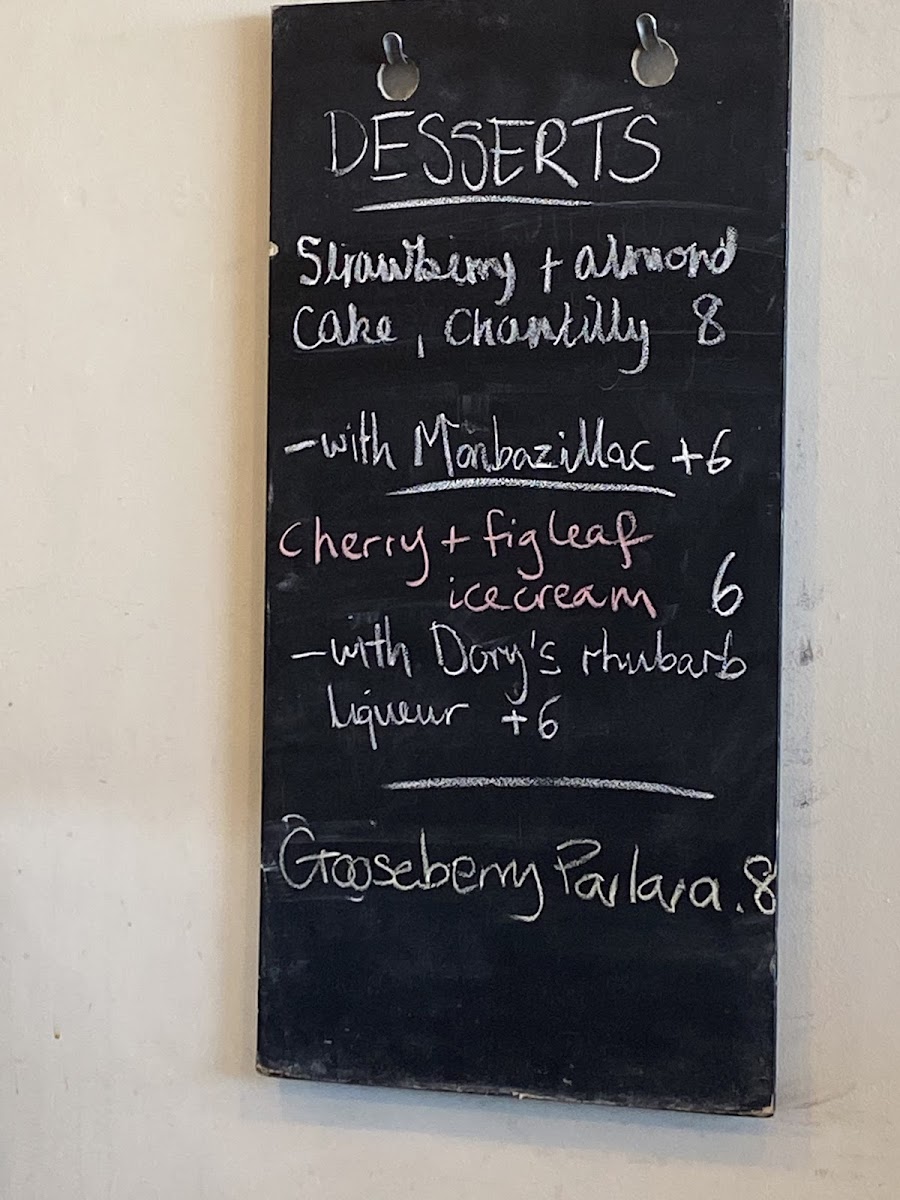 DESSERTS
Strawberry + almond
Cake, Chantilly 8
- with Monbazillac +6
Cherry + fig leaf
ice cream 6
- with Dory's rhubarb
liqueur +6
Gooseberry Parlara. 8